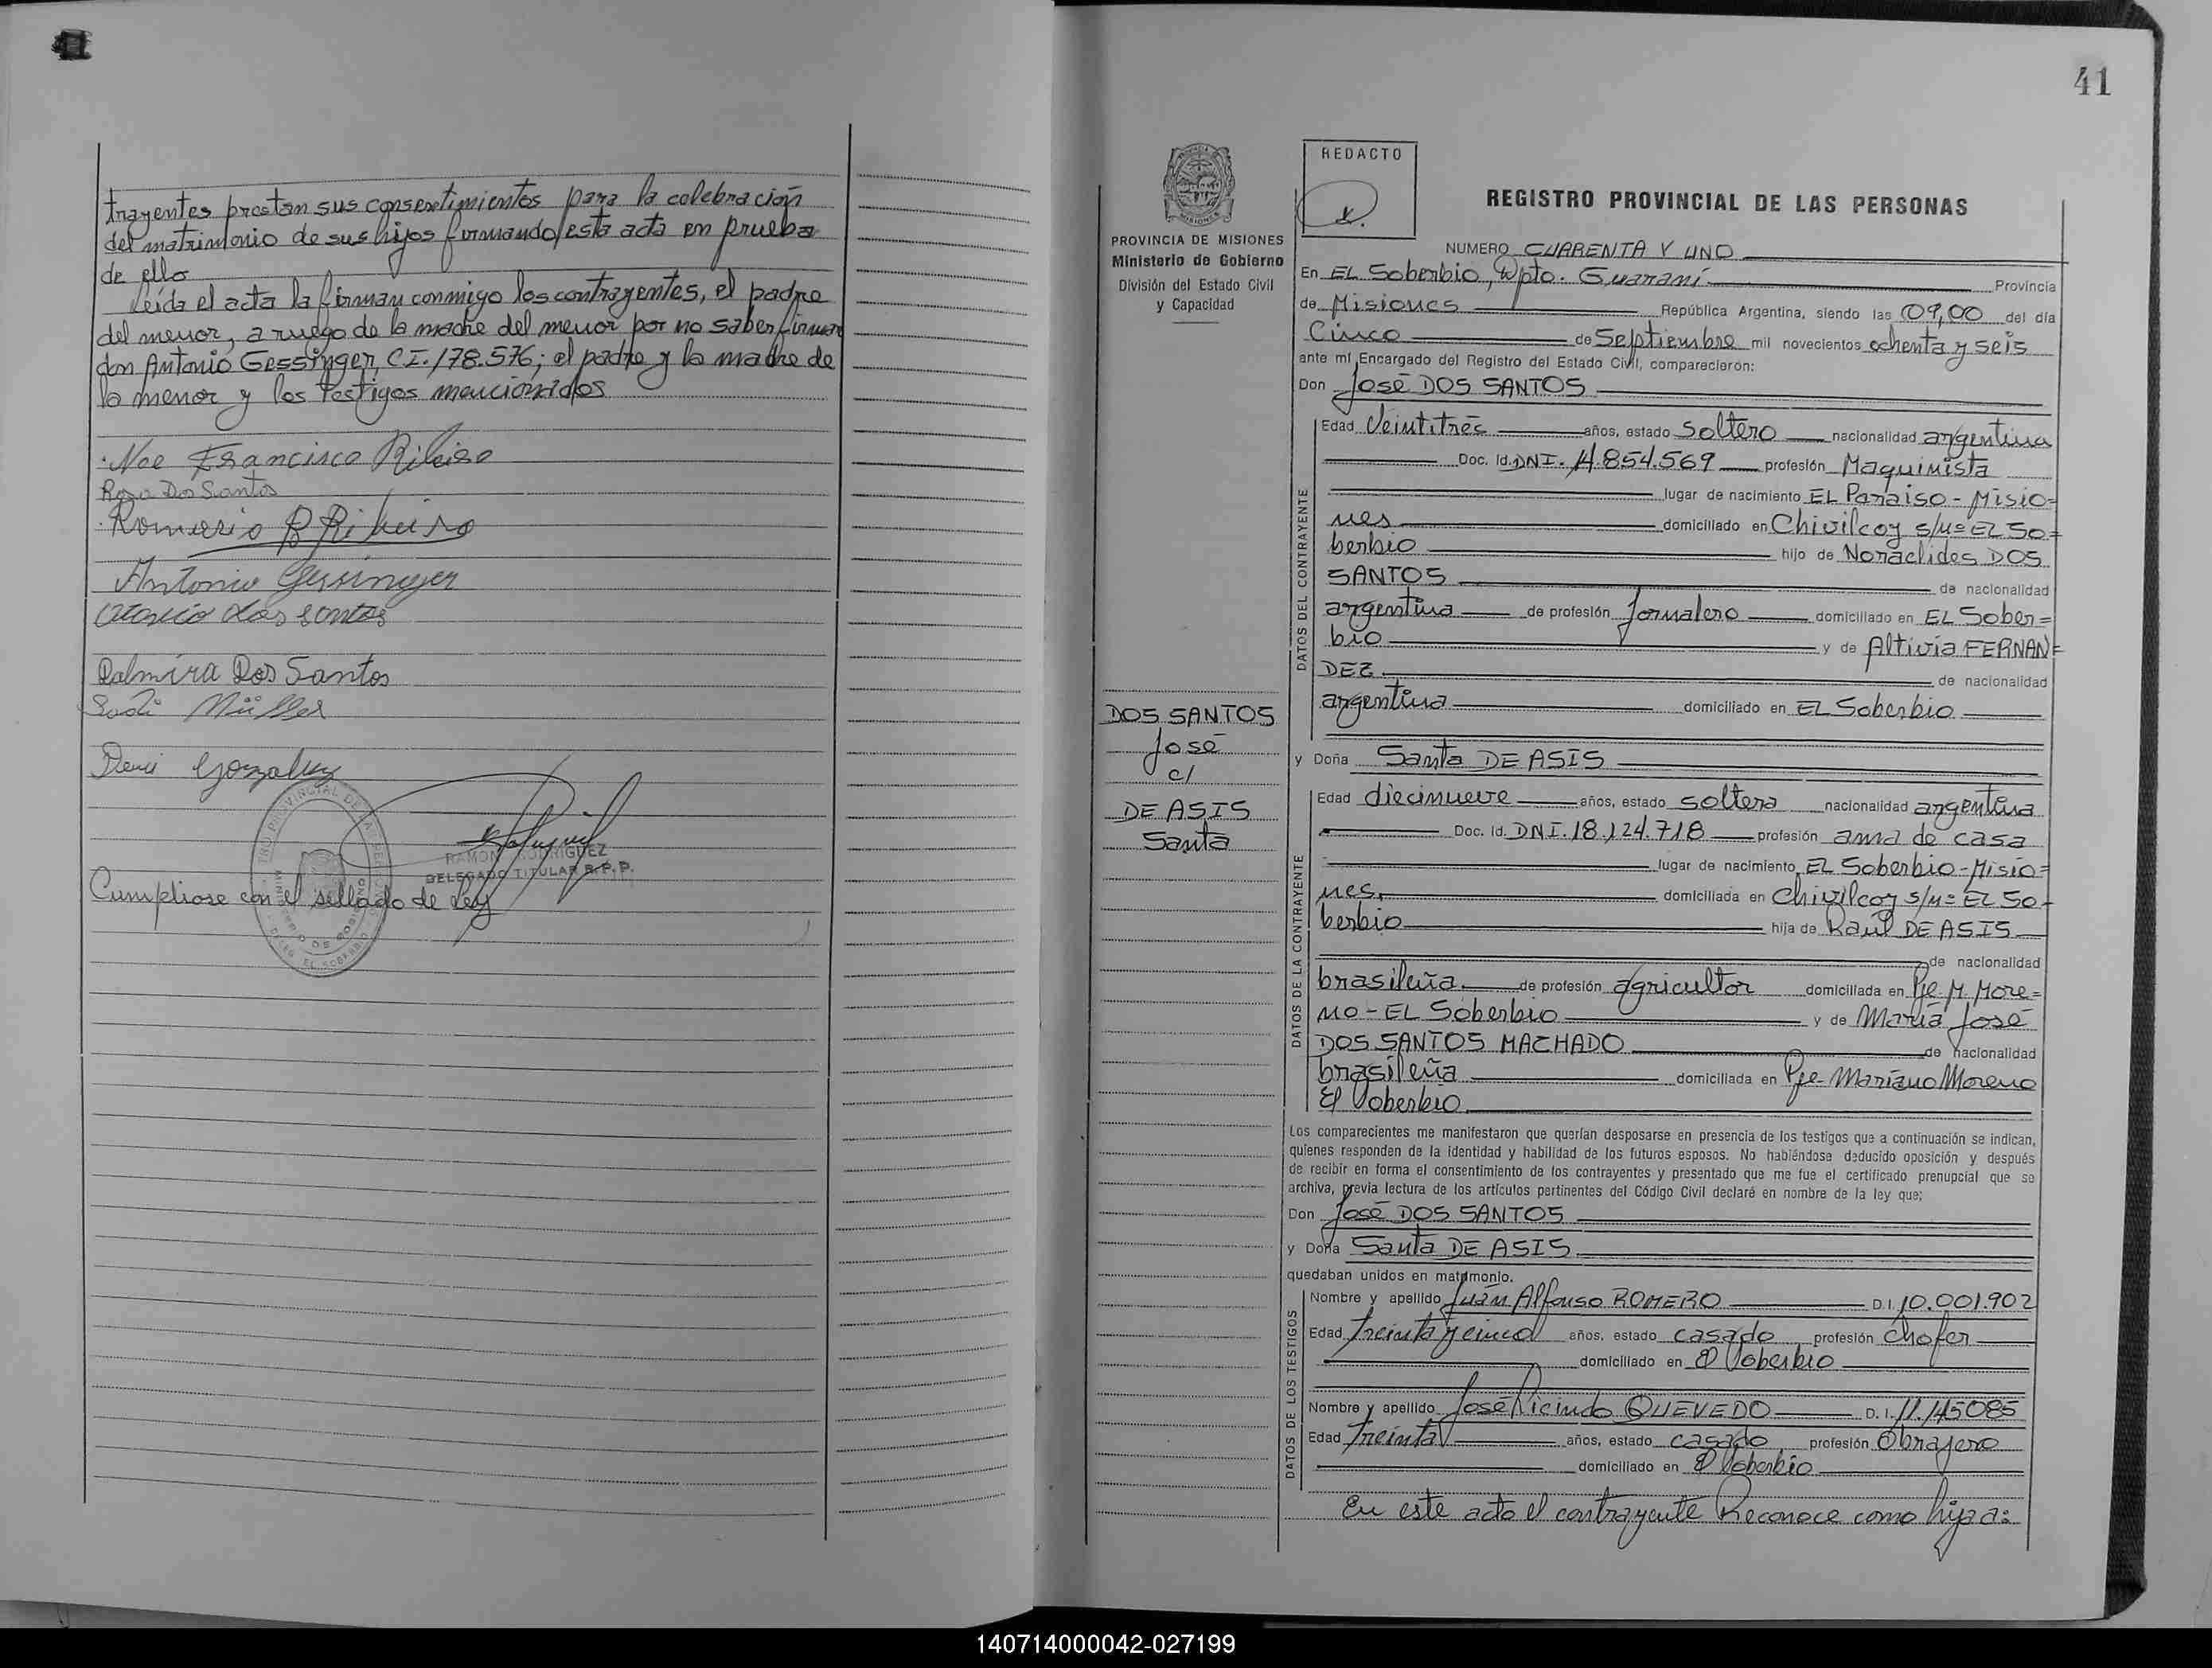 trayentes prestan sus consentimientos para la celebración
del matrimonio de sus hijos firmando esta acta en prueba
de ello
Leída el acta la firman conmigo los contrayentes, el padre
del menor, a ruego de la madre del menor por no saber firmar
don Antonio Gessinger, C.I. 178.576; el padre y la madre de
la menor y los testigos mencionados
Noe Francisco Ribeiro
Rosa Dos Santos
Antonio Gessinger
dos santos
Palmira Dos Santos
Müller
Gonzalez
RAMON RODRIGUEZ
DELEGADO TITULAR R.P.P.
Cumpliose con el sellado de Ley
41
PROVINCIA DE MISIONES
Ministerio de Gobierno
División del Estado Civil
y Capacidad
DOS SANTOS
José
c/
DE ASIS
Santa
REDACTO
REGISTRO PROVINCIAL DE LAS PERSONAS
NUMERO CUARENTA Y UNO
En EL Soberbio, Dpto. Guaraní Provincia
de Misiones República Argentina, siendo las 09,00 del día
Cinco de Septiembre mil novecientos ochenta y seis
ante mí Encargado del Registro del Estado Civil, comparecieron:
Don José DOS SANTOS
DATOS DEL CONTRAYENTE
Edad Veintitrés años, estado soltero nacionalidad argentina
Doc. Id. DNI. 14.854.569 profesión Maquinista
lugar de nacimiento EL Paraíso - Misio=
nes domiciliado en Chivilcoy s/nº EL So=
berbio hijo de Noraclides DOS
SANTOS de nacionalidad
argentina de profesión Jornalero domiciliado en EL Sober=
bio y de Altivia FERNAN=
DEZ de nacionalidad
argentina domiciliado en EL Soberbio
y Doña Santa DE ASIS
DATOS DE LA CONTRAYENTE
Edad diecinueve años, estado soltera nacionalidad argentina
Doc. Id. DNI. 18.124.718 profesión ama de casa
lugar de nacimiento EL Soberbio - Misio=
nes. domiciliada en Chivilcoy s/nº EL So-
berbio hija de Raúl DE ASIS
de nacionalidad
brasileña. de profesión agricultor domiciliada en Pje M. More=
no - EL Soberbio y de María José
DOS SANTOS MACHADO de nacionalidad
brasileña domiciliada en Pje Mariano Moreno
El Soberbio.
Los comparecientes me manifestaron que querían desposarse en presencia de los testigos que a continuación se indican,
quienes responden de la identidad y habilidad de los futuros esposos. No habiéndose deducido oposición y después
de recibir en forma el consentimiento de los contrayentes y presentado que me fue el certificado prenupcial que se
archiva, previa lectura de los artículos pertinentes del Código Civil declaré en nombre de la ley que;
Don José DOS SANTOS
y Doña Santa DE ASIS
quedaban unidos en matrimonio.
DATOS DE LOS TESTIGOS
Nombre y apellido Juan Alfonso ROMERO D.I. 10.001.902
Edad Treinta y cinco años, estado casado profesión chofer
domiciliado en El Soberbio
Nombre y apellido José QUEVEDO D.I. 11.145085
Edad Treinta años, estado casado profesión Obrajero
domiciliado en El Soberbio
En este acto el contrayente Reconoce como hija a:
140714000042-027199